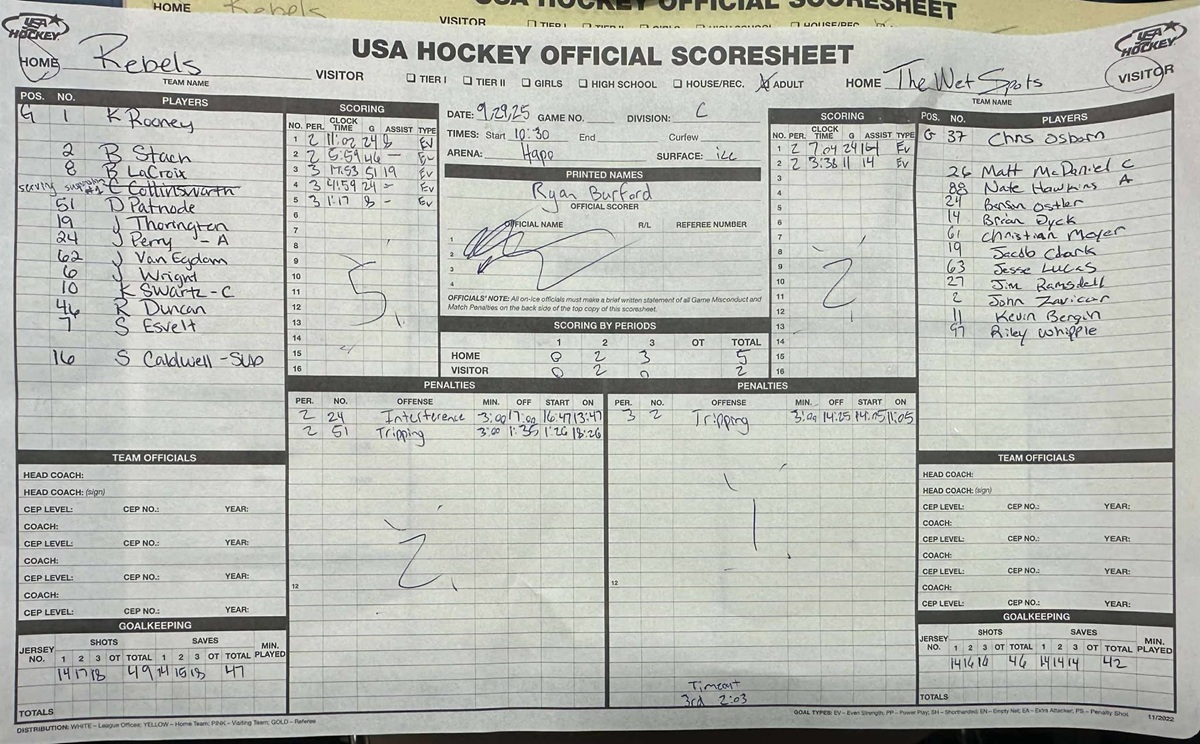 HOME Rebels
USA HOCKEY OFFICIAL SCORESHEET
VISITOR ☐ TIER I ☐ TIER II ☐ GIRLS ☐ HIGH SCHOOL ☐ HOUSE/REC.
USA HOCKEY
USA HOCKEY OFFICIAL SCORESHEET
USA HOCKEY
HOME Rebels VISITOR
TEAM NAME
☐ TIER I ☐ TIER II ☐ GIRLS ☐ HIGH SCHOOL ☐ HOUSE/REC. ☒ ADULT
HOME The Wet Spots VISITOR
TEAM NAME
POS. NO. PLAYERS
G 1 K Rooney
2 B Stach
8 B LaCroix
serving C Collinswarth
51 D Patnode
19 J Thorington
24 J Perry - A
62 J Van Eydam
6 J Wright
10 K Swartz - C
46 R Duncan
7 S Esvelt
16 S Caldwell - Sub
SCORING
NO. PER. CLOCK TIME G ASSIST TYPE
1 2 11:02 24 8 EV
2 2 5:59 46 - Ev
3 3 17:53 51 19 Ev
4 3 41:59 24 - Ev
5 3 1:17 8 - Ev
6
7
8
9
10
11
12
13
14
15
16
5
DATE: 9/29/25 GAME NO. DIVISION: C
TIMES: Start 10:30 End Curfew
ARENA: Hapo SURFACE: ice
PRINTED NAMES
Ryan Burford
OFFICIAL SCORER
OFFICIAL NAME R/L REFEREE NUMBER
1
2
3
4
OFFICIALS' NOTE: All on-ice officials must make a brief written statement of all Game Misconduct and
Match Penalties on the back side of the top copy of this scoresheet.
SCORING BY PERIODS
1 2 3 OT TOTAL
HOME 0 2 3 5
VISITOR 0 2 0 2
SCORING
NO. PER. CLOCK TIME G ASSIST TYPE
1 2 7:04 24 Ev
2 2 3:38 11 14 Ev
3
4
5
6
7
8
9
10
11
12
13
14
15
16
2
POS. NO. PLAYERS
G 37 Chris Osborn
26 Matt McDaniel C
88 Nate Hawkins A
24 Benson Ostler
14 Brian Dyck
61 Christian Moyer
19 Jacob Clark
63 Jesse Lucas
27 Jim Ramsdell
2 John Zavicar
11 Kevin Bergin
97 Riley Whipple
PENALTIES
PER. NO. OFFENSE MIN. OFF START ON
2 24 Interference 3:00 17:00 16:47 13:47
2 51 Tripping 3:00 1:35 1:26 18:26
12
2
PENALTIES
PER. NO. OFFENSE MIN. OFF START ON
3 2 Tripping 3:00 14:25 14:05 11:05
12
1
Timeout
3rd 2:03
TEAM OFFICIALS
HEAD COACH:
HEAD COACH: (sign)
CEP LEVEL: CEP NO.: YEAR:
COACH:
CEP LEVEL: CEP NO.: YEAR:
COACH:
CEP LEVEL: CEP NO.: YEAR:
COACH:
CEP LEVEL: CEP NO.: YEAR:
GOALKEEPING
JERSEY NO. SHOTS SAVES MIN. PLAYED
1 2 3 OT TOTAL 1 2 3 OT TOTAL
14 17 18 49 14 15 18 47
TOTALS
TEAM OFFICIALS
HEAD COACH:
HEAD COACH: (sign)
CEP LEVEL: CEP NO.: YEAR:
COACH:
CEP LEVEL: CEP NO.: YEAR:
COACH:
CEP LEVEL: CEP NO.: YEAR:
COACH:
CEP LEVEL: CEP NO.: YEAR:
GOALKEEPING
JERSEY NO. SHOTS SAVES MIN. PLAYED
1 2 3 OT TOTAL 1 2 3 OT TOTAL
14 16 16 46 14 14 14 42
TOTALS
DISTRIBUTION: WHITE – League Offices; YELLOW – Home Team; PINK – Visiting Team; GOLD – Referee
GOAL TYPES: EV – Even Strength, PP – Power Play; SH – Shorthanded, EN – Empty Net; EA – Extra Attacker; PS – Penalty Shot 11/2022